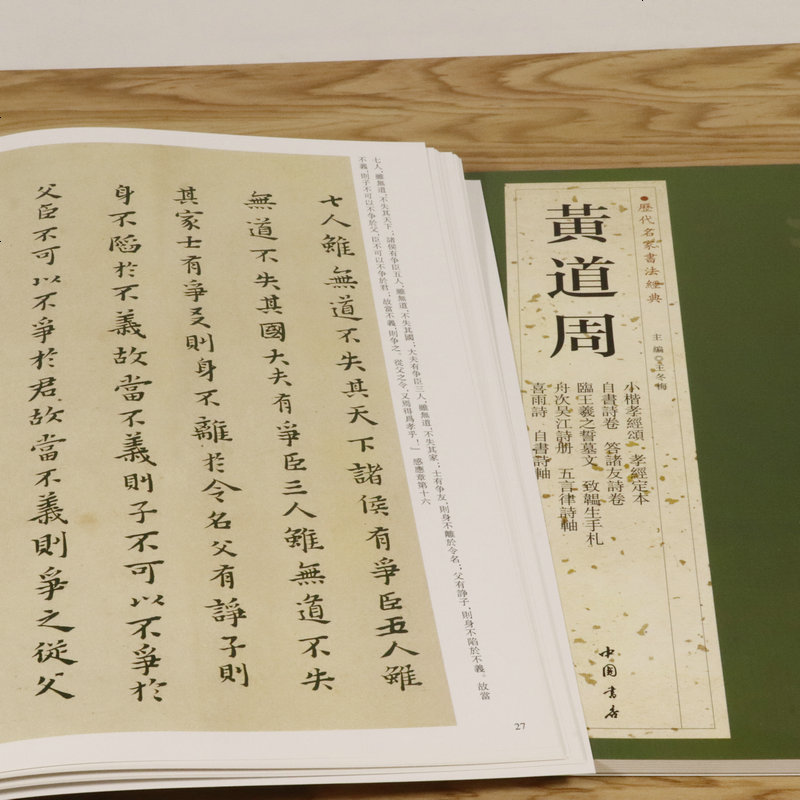 七人雖無道不失其天下諸侯有爭臣五人雖
無道不失其國大夫有爭臣三人雖無道不失
其家士有爭友則身不離於令名父有諍子則
身不陷於不義故當不義則子不可以不爭於
父臣不可以不爭於君故當不義則爭之從父
七人,雖無道,不失其天下;諸侯有争臣五人,雖無道,不失其國;大夫有争臣三人,雖無道,不失其家;士有争友,則身不離於令名;父有諍子,則身不陷於不義。故當
不義,則子不可以不争於父,臣不可以不争於君;故當不義,則争之。從父之令,又焉得爲孝乎!」 感應章第十六
27
歷代名家書法經典
黄道周
主編◎王冬梅
小楷孝經頌 孝經定本
自書詩卷 答諸友詩卷
臨王羲之誓墓文 致韞生手札
舟次吴江詩册 五言律詩軸
喜雨詩 自書詩軸
中国书店